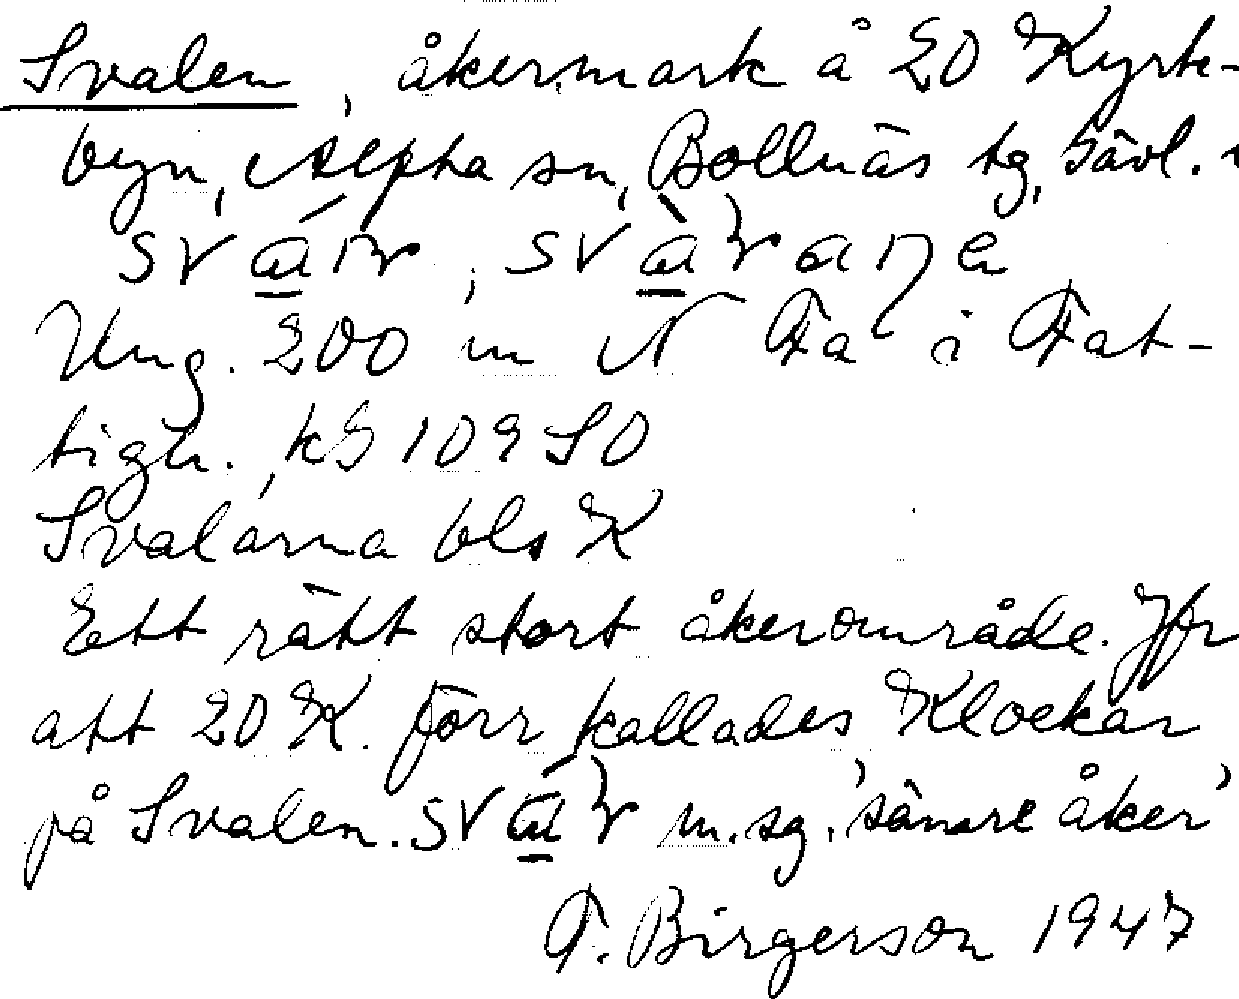 Svalen, åkermark å 20 Kyrk-
byn, Alfta sn, Bollnäs tg, Gävl.
Ung. 200 m N Fa i Fat-
tigh., kS 109 SO
Svalarna bls K
Ett rätt stort åkerområde. Jfr
att 20 K. förr kallades Klockar
på Svalen. m. sg. 'sämre åker'
F. Birgerson 1947